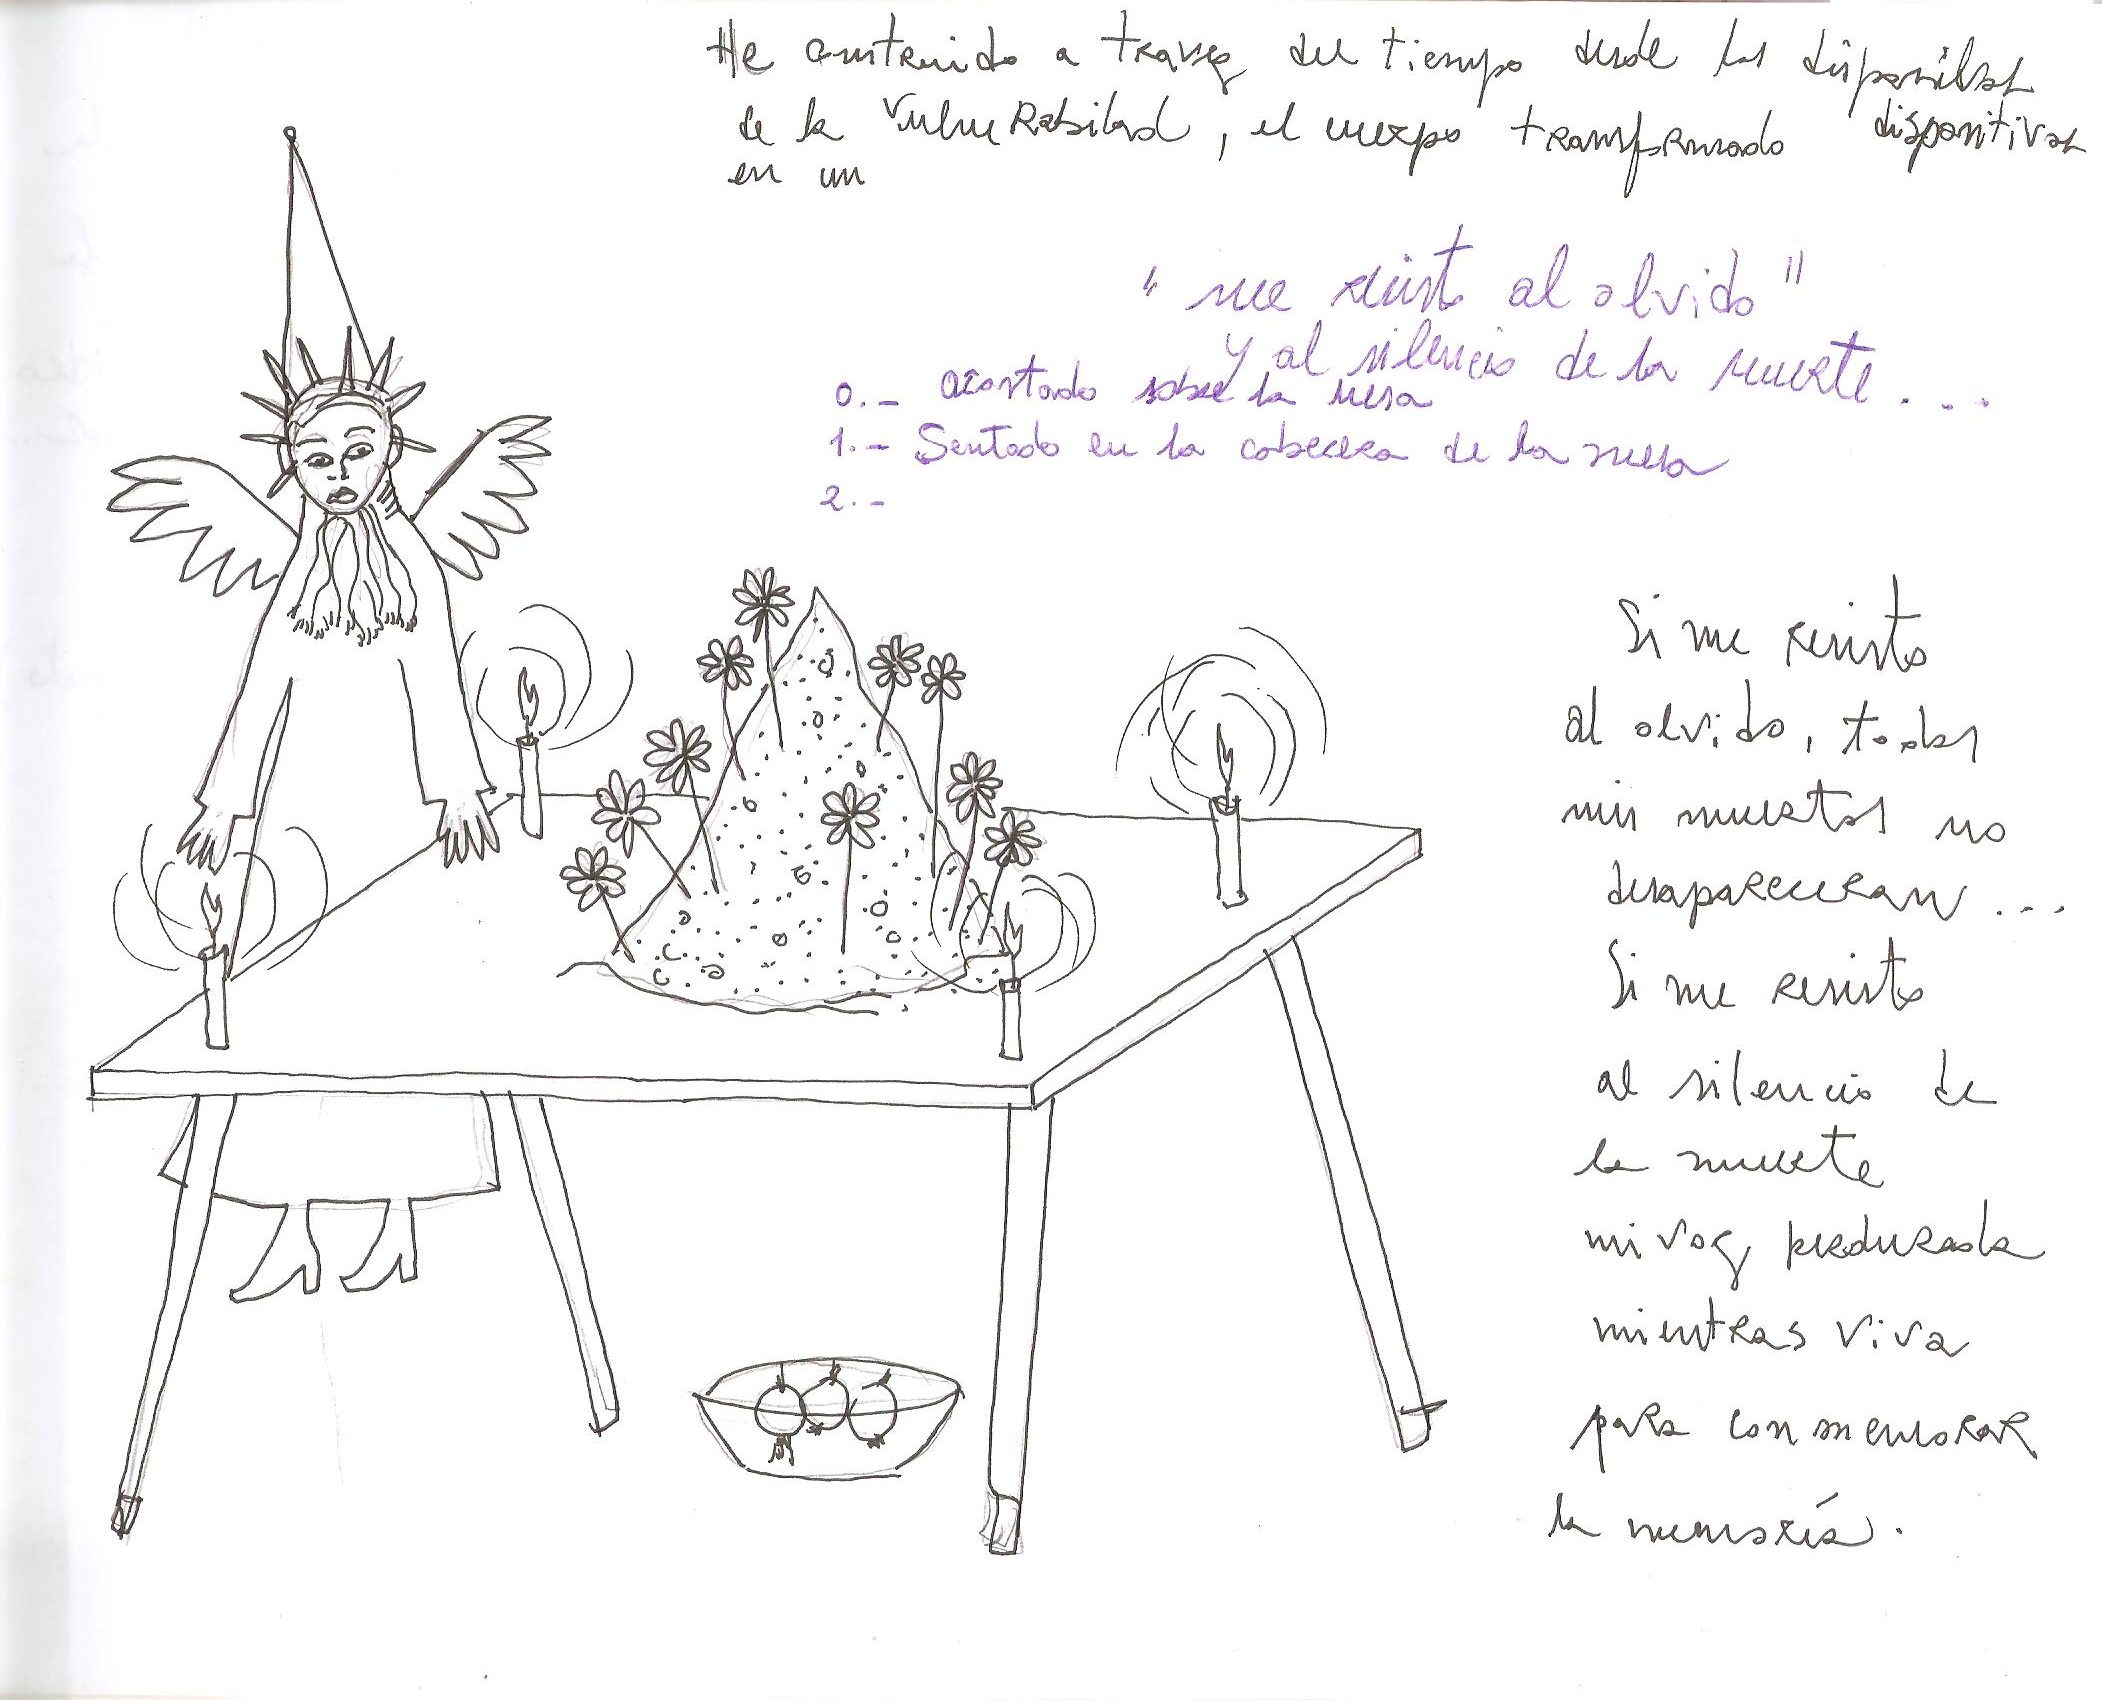 He construido a travez del tiempo desde los
de la vulnerabilidad, el cuerpo transformado dispositivos
en un
"me resisto al olvido"
y al silencio de la muerte...
0.- acostado sobre la mesa
1.- Sentado en la cabecera de la mesa
2.-
Si me resisto
al olvido, todos
mis muertos no
desapareceran...
Si me resisto
al silencio de
la muerte
mi voz perdurada
mientras viva
para conmemorar
la memoría.